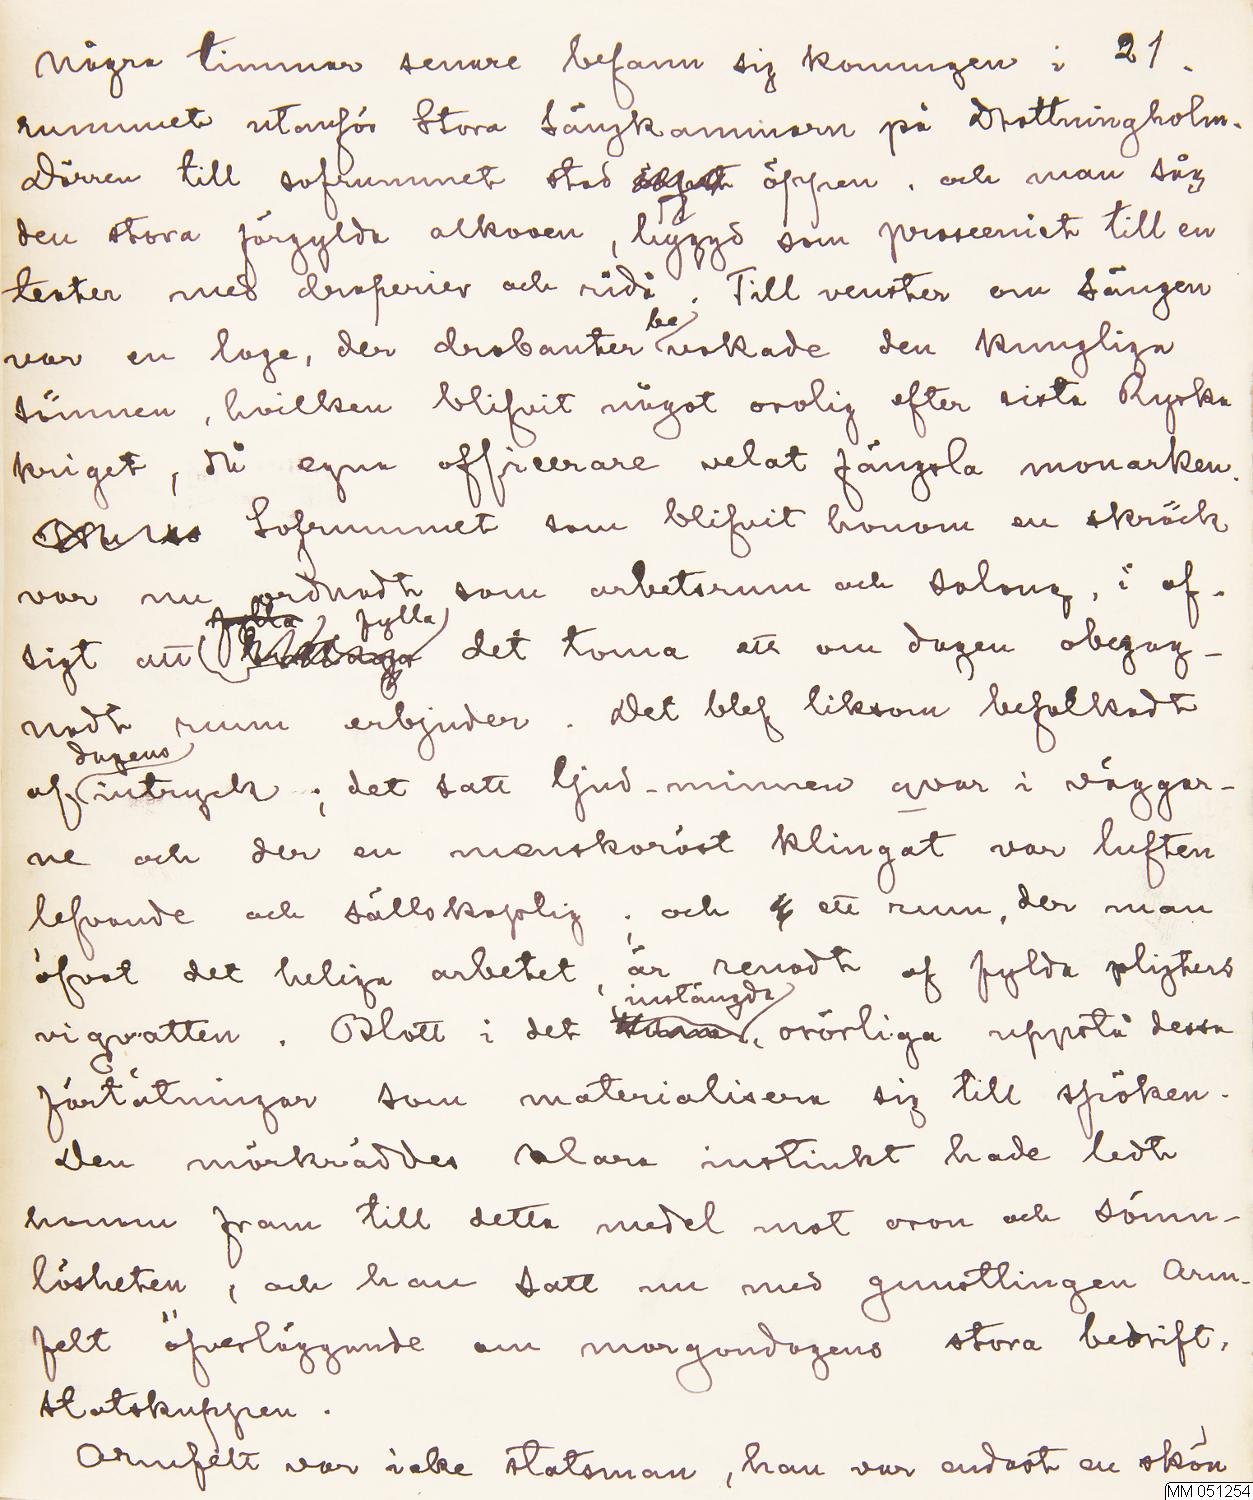 Några timmar senare befann sig konungen i 21.
rummet utanför Stora Sängkammarn på Drottningholm.
Dörren till sofrummet stod öppen, och man såg
den stora förgylda alkoven, byggd som prosceniet till en
teater med draperier och ridå. Till venster om Sängen
var en loge, der drabanter be vakade den kungliga
sömnen, hvilken blifvit något orolig efter sista Ryska
kriget, då egna officerare velat fängsla monarken.
Sofrummet som blifvit honom en skräck
var nu ordnadt som arbetsrum och salong, i af-
fylla fylla
sigt att det toma ett om dagen obegag-
nadt rum erbjuder. Det blef liksom befolkadt
dagens
af intryck; det satt ljud-minnen qvar i väggar-
ne och der en menskoröst klingat var luften
lefvande och sällskaplig; och ett rum, der man
öfvat det heliga arbetet, är renadt af fylda pligters
instängda
vigvatten. Blott i det orörliga uppstå dessa
förtätningar som materialisera sig till spöken.
Den mörkräddes klara instinkt hade ledt
honom fram till detta medel mot oron och sömn-
lösheten, och han satt nu med gunstlingen Arm-
felt öfverläggande om morgondagens stora bedrift,
statskuppen.
Armfelt var icke statsman, han var endast en skön
MM 051254